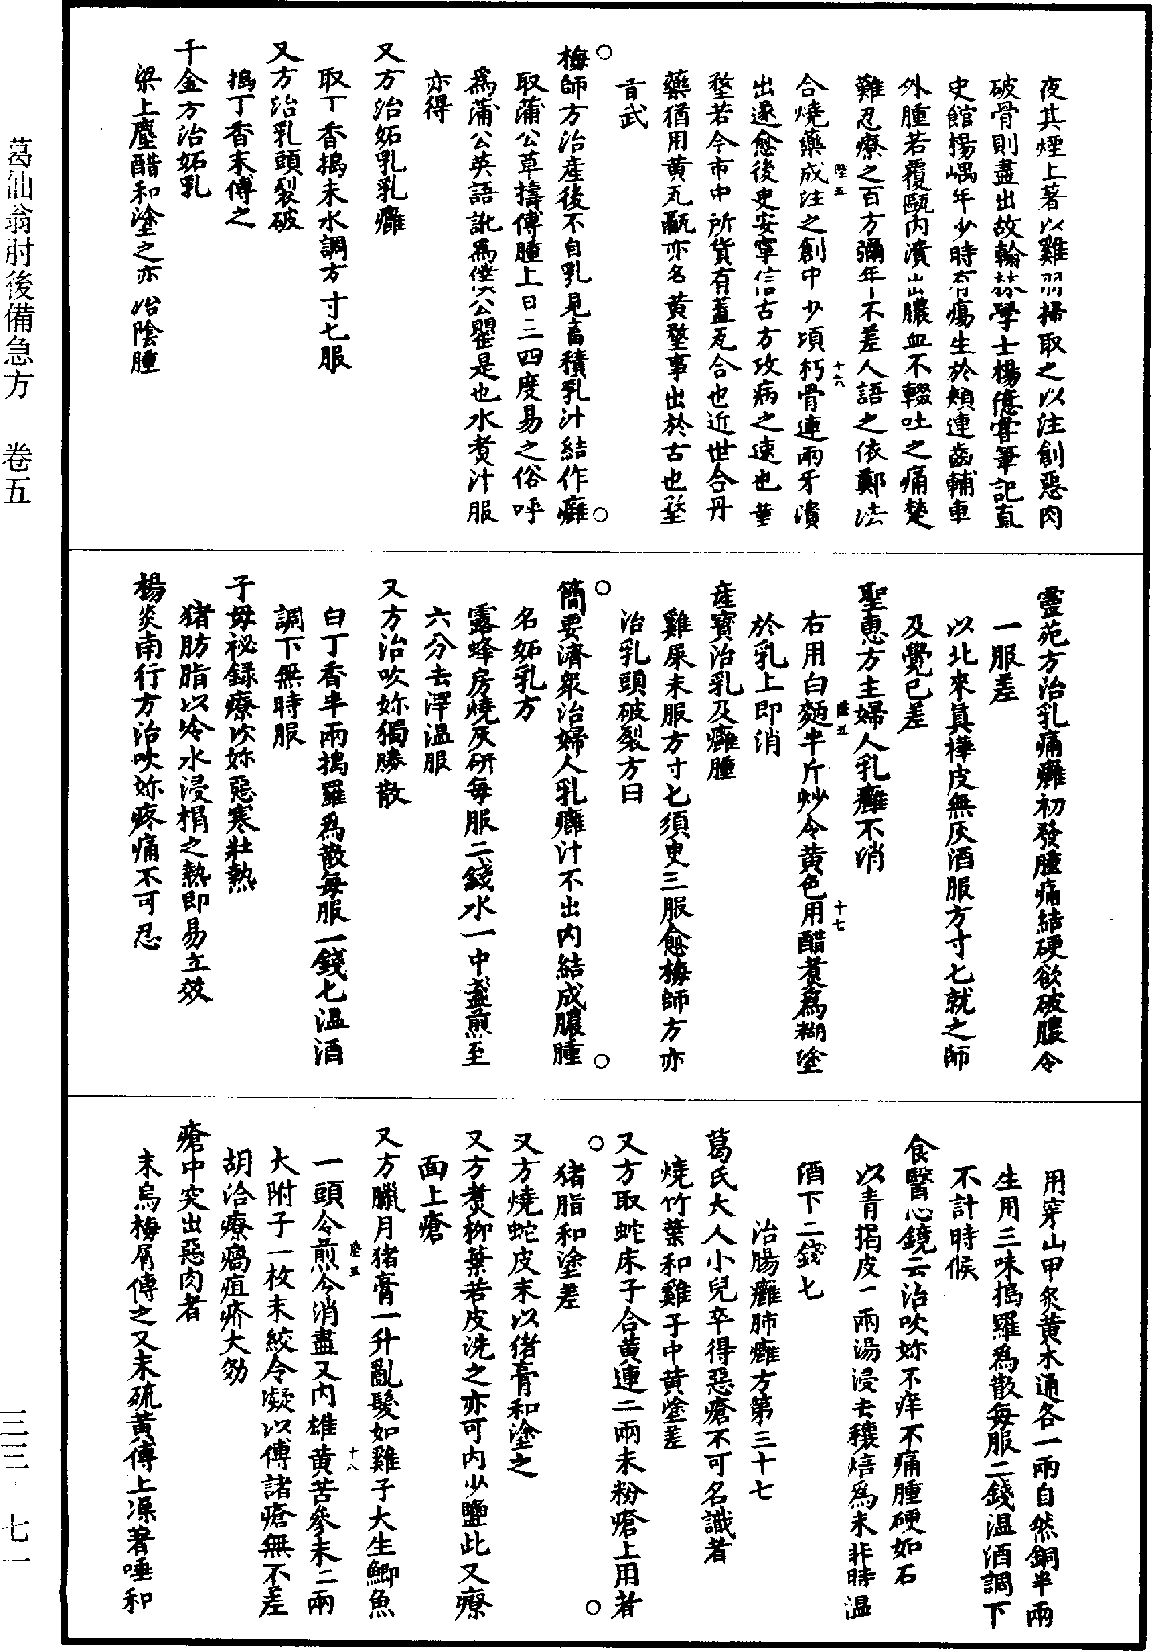 葛仙翁肘後備急方 卷五
夜其煙上著以雞羽掃取之以注創惡肉
破骨則盡出故翰林學士楊億嘗筆記直
史館楊嵎年少時有瘍生於頰連齒輔車
外腫若覆甌内潰出膿血不輟吐之痛楚
難忍療之百方彌年不差人語之依鄭法
合燒藥成注之創中少頃朽骨連兩牙潰
出遂愈後更安寧信古方攻病之速也黃
堥若今市中所貨有蓋瓦合也近世合丹
藥猶用黃瓦鬲亦名黃堥事出於古也堥
音武
梅師方治產後不自乳見畜積乳汁結作癰
取蒲公草擣傅腫上日三四度易之俗呼
為蒲公英語訛為僕公罌是也水煮汁服
亦得
又方治妬乳乳癰
取丁香搗末水調方寸匕服
又方治乳頭裂破
搗丁香末傅之
千金方治妬乳
梁上塵醋和塗之亦治陰腫
靈苑方治乳痛癰初發腫痛結硬欲破膿令
一服差
以北來真樺皮無灰酒服方寸匕就之師
及覺已差
聖惠方主婦人乳癰不消
右用白麵半斤炒令黃色用醋煮為糊塗
於乳上即消
產寶治乳及癰腫
雞屎末服方寸匕須臾三服愈梅師方亦
治乳頭破裂方曰
簡要濟衆治婦人乳癰汁不出内結成膿腫
名妬乳方
露蜂房燒灰研每服二錢水一中盞煎至
六分去滓溫服
又方治吹妳獨勝散
白丁香半兩搗羅為散每服一錢匕溫酒
調下無時服
子母祕錄療吹妳惡寒壯熱
猪肪脂以冷水浸搨之熱即易立效
楊炎南行方治吹妳疼痛不可忍
用穿山甲炙黃木通各一兩自然銅半兩
生用三味搗羅為散每服二錢溫酒調下
不計時候
食醫心鏡云治吹妳不痒不痛腫硬如石
以青橘皮二兩湯浸去穰焙為末非時溫
酒下二錢匕
治腸癰肺癰方第三十七
葛氏大人小兒卒得惡瘡不可名識者
燒竹葉和雞子中黃塗差
又方取蛇床子合黃連二兩末粉瘡上用者
猪脂和塗差
又方燒蛇皮末以猪膏和塗之
又方煮柳葉若皮洗之亦可内少鹽此又療
面上瘡
又方臘月猪膏一升亂髮如雞子大生鯽魚
一頭令煎令消盡又内雄黃苦參末二兩
大附子一枚末絞令凝以傅諸瘡無不差
胡洽療瘑疽疥大効
瘡中突出惡肉者
末烏梅屑傅之又末硫黃傅上燥著唾和
三三·七一